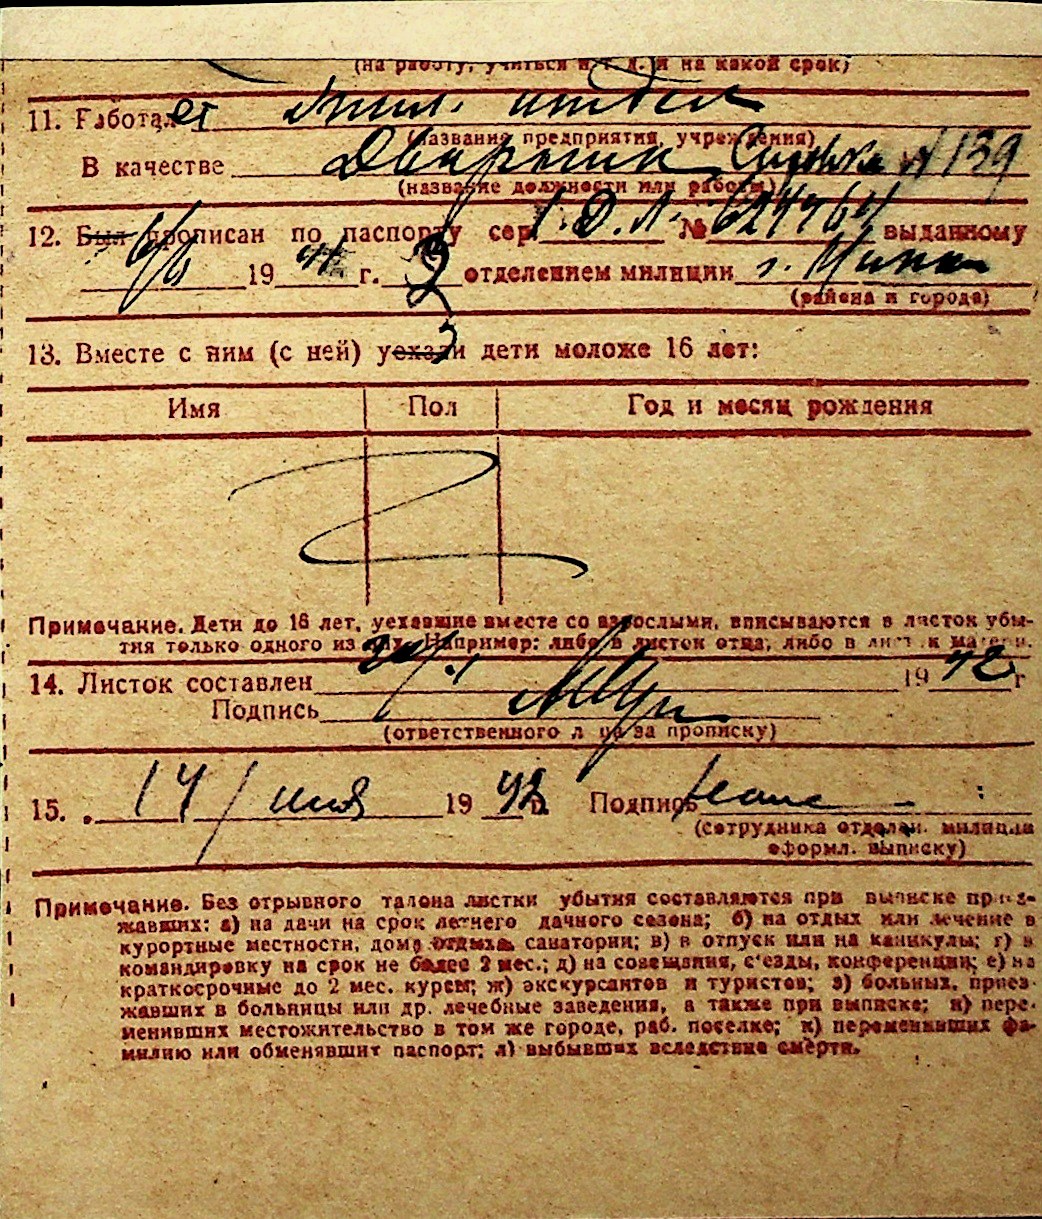 (на работу, учиться и т. д. и на какой срок)
11. Работает Жил. отдел
(название предприятия, учреждения)
В качестве Дворник № 139
(название должности или работы)
12. Был прописан по паспорту сер. № 624764 выданному
19 41 г. 9 отделением милиции г.
(района и города)
13. Вместе с ним (с ней) уехали дети моложе 16 лет:
Имя Пол Год и месяц рождения
Примечание. Дети до 16 лет, уехавшие вместе со взрослыми, вписываются в листок убы-
тия только одного из них. Например: либо в листок отца, либо в листок матери.
14. Листок составлен 19 42 г
Подпись
(ответственного лица за прописку)
15. 14 / июля 19 42 г. Подпись
(сотрудника отделен. милиции
оформл. выписку)
Примечание. Без отрывного талона листки убытия составляются при выписке приез-
жавших: а) на дачи на срок летнего дачного сезона; б) на отдых или лечение в
курортные местности, дома отдыха, санатории; в) в отпуск или на каникулы; г) в
командировку на срок не более 2 мес.; д) на совещания, с'езды, конференции; е) на
краткосрочные до 2 мес. курсы; ж) экскурсантов и туристов; з) больных, приез-
жавших в больницы или др. лечебные заведения, а также при выписке; и) пере-
менивших местожительство в том же городе, раб. поселке; к) переменивших фа-
милию или обменявших паспорт; л) выбывших вследствие смерти.